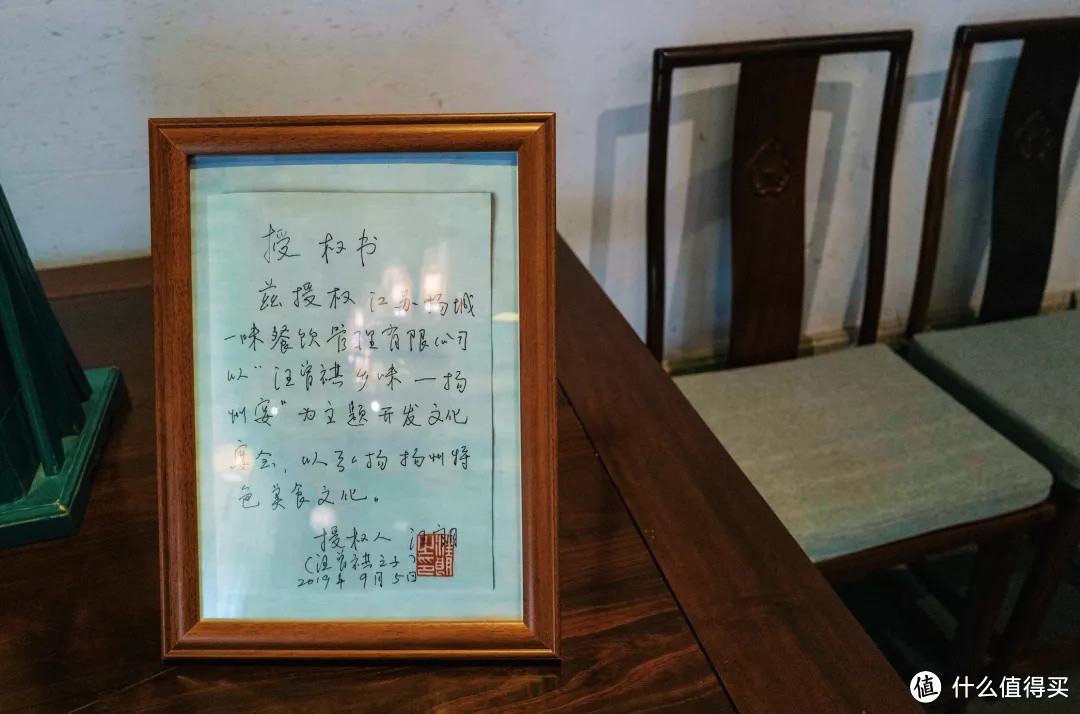 授权书
兹授权江苏扬城
一味餐饮管理有限公司
以“汪曾祺乡味一扬
州宴”为主题开发文化
宴会，以弘扬扬州特
色美食文化。
授权人 汪朗
（汪曾祺之子）
2019年9月5日
值 什么值得买